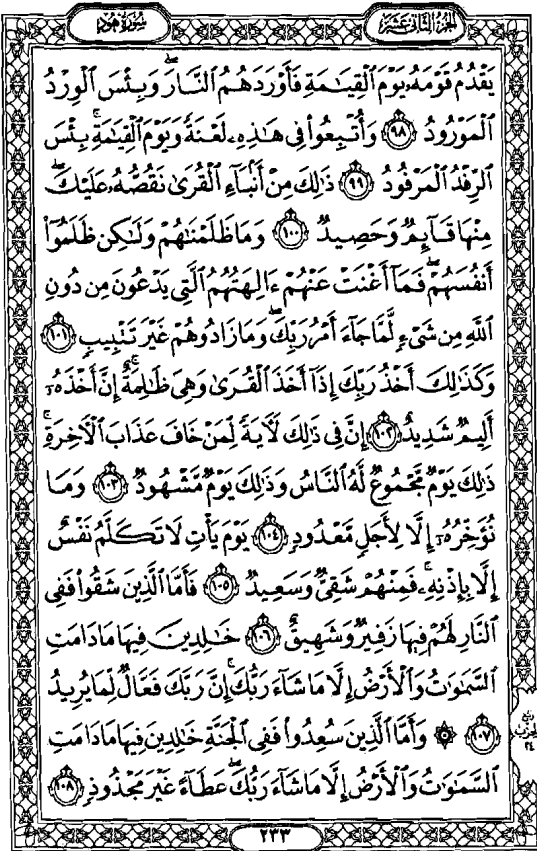 سُورَةُ هُودٍ
الجزء الثاني عشر
يَقْدُمُ قَوْمَهُۥ يَوْمَ ٱلْقِيَٰمَةِ فَأَوْرَدَهُمُ ٱلنَّارَ ۖ وَبِئْسَ ٱلْوِرْدُ
ٱلْمَوْرُودُ ۝٩٨ وَأُتْبِعُوا۟ فِى هَٰذِهِۦ لَعْنَةً وَيَوْمَ ٱلْقِيَٰمَةِ ۚ بِئْسَ
ٱلرِّفْدُ ٱلْمَرْفُودُ ۝٩٩ ذَٰلِكَ مِنْ أَنۢبَآءِ ٱلْقُرَىٰ نَقُصُّهُۥ عَلَيْكَ ۖ
مِنْهَا قَآئِمٌ وَحَصِيدٌ ۝١٠٠ وَمَا ظَلَمْنَٰهُمْ وَلَٰكِن ظَلَمُوٓا۟
أَنفُسَهُمْ ۖ فَمَآ أَغْنَتْ عَنْهُمْ ءَالِهَتُهُمُ ٱلَّتِى يَدْعُونَ مِن دُونِ
ٱللَّهِ مِن شَىْءٍ لَّمَّا جَآءَ أَمْرُ رَبِّكَ ۖ وَمَا زَادُوهُمْ غَيْرَ تَتْبِيبٍ ۝١٠١
وَكَذَٰلِكَ أَخْذُ رَبِّكَ إِذَآ أَخَذَ ٱلْقُرَىٰ وَهِىَ ظَٰلِمَةٌ ۚ إِنَّ أَخْذَهُۥٓ
أَلِيمٌ شَدِيدٌ ۝١٠٢ إِنَّ فِى ذَٰلِكَ لَءَايَةً لِّمَنْ خَافَ عَذَابَ ٱلْءَاخِرَةِ ۚ
ذَٰلِكَ يَوْمٌ مَّجْمُوعٌ لَّهُ ٱلنَّاسُ وَذَٰلِكَ يَوْمٌ مَّشْهُودٌ ۝١٠٣ وَمَا
نُؤَخِّرُهُۥٓ إِلَّا لِأَجَلٍ مَّعْدُودٍ ۝١٠٤ يَوْمَ يَأْتِ لَا تَكَلَّمُ نَفْسٌ
إِلَّا بِإِذْنِهِۦ ۚ فَمِنْهُمْ شَقِىٌّ وَسَعِيدٌ ۝١٠٥ فَأَمَّا ٱلَّذِينَ شَقُوا۟ فَفِى
ٱلنَّارِ لَهُمْ فِيهَا زَفِيرٌ وَشَهِيقٌ ۝١٠٦ خَٰلِدِينَ فِيهَا مَا دَامَتِ
ٱلسَّمَٰوَٰتُ وَٱلْأَرْضُ إِلَّا مَا شَآءَ رَبُّكَ ۚ إِنَّ رَبَّكَ فَعَّالٌ لِّمَا يُرِيدُ
۝١٠٧ ۞ وَأَمَّا ٱلَّذِينَ سُعِدُوا۟ فَفِى ٱلْجَنَّةِ خَٰلِدِينَ فِيهَا مَا دَامَتِ
ٱلسَّمَٰوَٰتُ وَٱلْأَرْضُ إِلَّا مَا شَآءَ رَبُّكَ ۖ عَطَآءً غَيْرَ مَجْذُوذٍ ۝١٠٨
ربع
الحزب
٢٤
٢٣٣